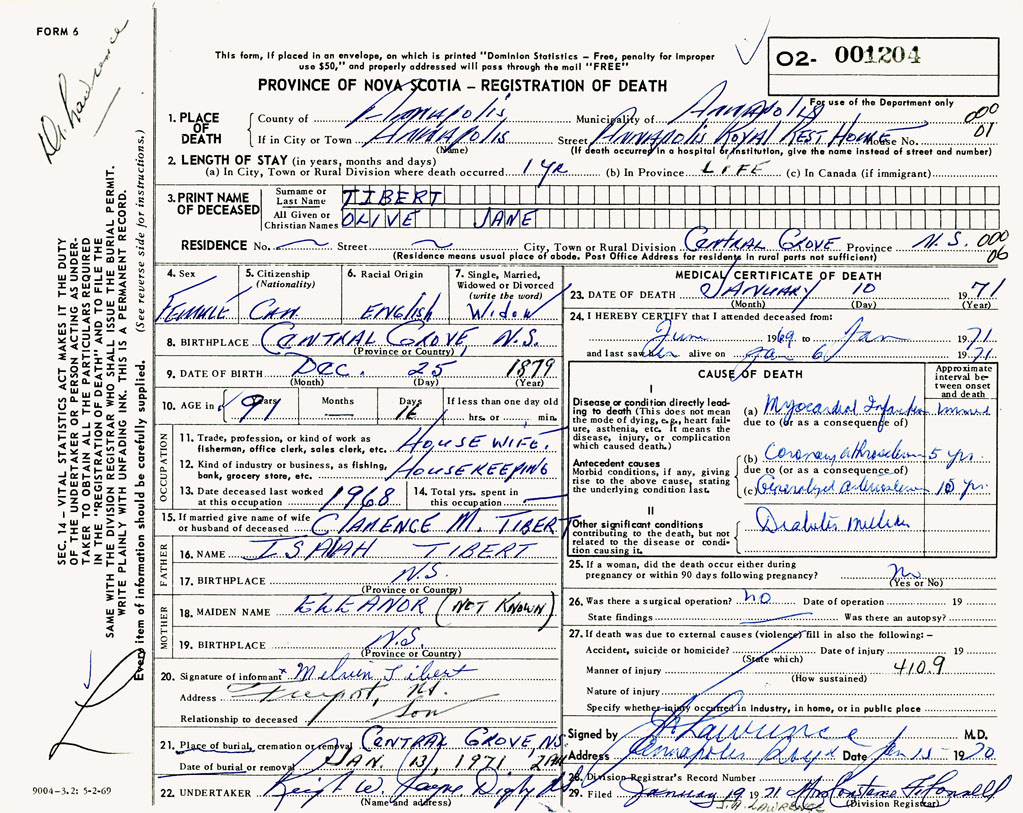 FORM 6
Dr. Lawrence
This form, if placed in an envelope, on which is printed "Dominion Statistics – Free, penalty for improper
use $50," and properly addressed will pass through the mail "FREE"
O2- 001204
PROVINCE OF NOVA SCOTIA – REGISTRATION OF DEATH
For use of the Department only
1. PLACE OF DEATH
County of Annapolis Municipality of Annapolis 000
If in City or Town Annapolis Street Annapolis Royal Rest Home House No. 01
(Name) (If death occurred in a hospital or institution, give the name instead of street and number)
2. LENGTH OF STAY (in years, months and days)
(a) In City, Town or Rural Division where death occurred 1 yr (b) In Province LIFE (c) In Canada (if immigrant)
3. PRINT NAME OF DECEASED
Surname or Last Name TIBERT
All Given or Christian Names OLIVE JANE
RESIDENCE No. Street City, Town or Rural Division Central Grove Province N.S. 000
(Residence means usual place of abode. Post Office Address for residents in rural parts not sufficient) 06
4. Sex Female
5. Citizenship (Nationality) Can.
6. Racial Origin English
7. Single, Married, Widowed or Divorced (write the word) Widow
8. BIRTHPLACE Central Grove, N.S.
(Province or Country)
9. DATE OF BIRTH Dec. 25 1879
(Month) (Day) (Year)
10. AGE in 91 Years Months Days 16 If less than one day old
hrs. or min.
OCCUPATION
11. Trade, profession, or kind of work as fisherman, office clerk, sales clerk, etc. Housewife.
12. Kind of industry or business, as fishing, bank, grocery store, etc. Housekeeping
13. Date deceased last worked at this occupation 1968
14. Total yrs. spent in this occupation
15. If married give name of wife or husband of deceased Clarence M. Tibert
FATHER
16. NAME Isaiah Tibert
17. BIRTHPLACE N.S.
(Province or Country)
MOTHER
18. MAIDEN NAME Eleanor (Not Known)
19. BIRTHPLACE N.S.
(Province or Country)
20. Signature of informant x Melvin Tibert
Address Freeport, N.S.
Relationship to deceased Son
21. Place of burial, cremation or removal Central Grove, NS
Date of burial or removal Jan. 13, 1971 2 PM
22. UNDERTAKER W. Digby
(Name and address)
MEDICAL CERTIFICATE OF DEATH
23. DATE OF DEATH January 10 1971
(Month) (Day) (Year)
24. I HEREBY CERTIFY that I attended deceased from:
June 1969 to Jan 1971
and last saw her alive on Jan 6 1971.
CAUSE OF DEATH
Approximate interval between onset and death
I
Disease or condition directly leading to death (This does not mean the mode of dying, e.g., heart failure, asthenia, etc. It means the disease, injury, or complication which caused death.)
(a) Myocardial Infarction
due to (or as a consequence of)
(b) Coronary 5 yrs.
due to (or as a consequence of)
Antecedent causes
Morbid conditions, if any, giving rise to the above cause, stating the underlying condition last.
(c) Generalized 15 yrs.
II
Other significant conditions contributing to the death, but not related to the disease or condition causing it.
Diabetes mellitus
25. If a woman, did the death occur either during pregnancy or within 90 days following pregnancy? No
(Yes or No)
26. Was there a surgical operation? no Date of operation 19
State findings Was there an autopsy?
27. If death was due to external causes (violence) fill in also the following: –
Accident, suicide or homicide? Date of injury 19
(State which)
Manner of injury 410.9
(How sustained)
Nature of injury
Specify whether injury occurred in industry, in home, or in public place
Signed by Lawrence M.D.
Address Annapolis Royal Date Jan 15 1970
28. Division Registrar's Record Number
29. Filed January 19 1971 Mrs
(Division Registrar)
J.R. LAWRENCE
SEC. 14 – VITAL STATISTICS ACT MAKES IT THE DUTY
OF THE UNDERTAKER OR PERSON ACTING AS UNDER-
TAKER TO OBTAIN ALL THE PARTICULARS REQUIRED
IN THE "REGISTRATION OF DEATH" AND TO FILE THE
SAME WITH THE DIVISION REGISTRAR WHO SHALL ISSUE THE BURIAL PERMIT.
WRITE PLAINLY WITH UNFADING INK. THIS IS A PERMANENT RECORD.
Every item of information should be carefully supplied. (See reverse side for instructions.)
9004-3.2: 5-2-69